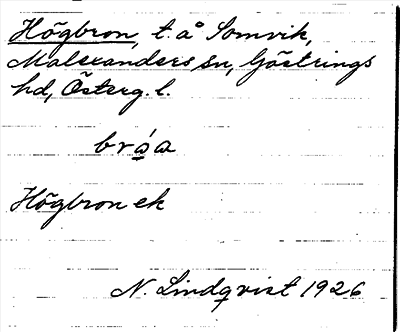 Högbron, t. å Somvik,
Malexanders sn, Göstrings
hd, Österg. l.
bróa
Högbron ek
N. Lindqvist 1926